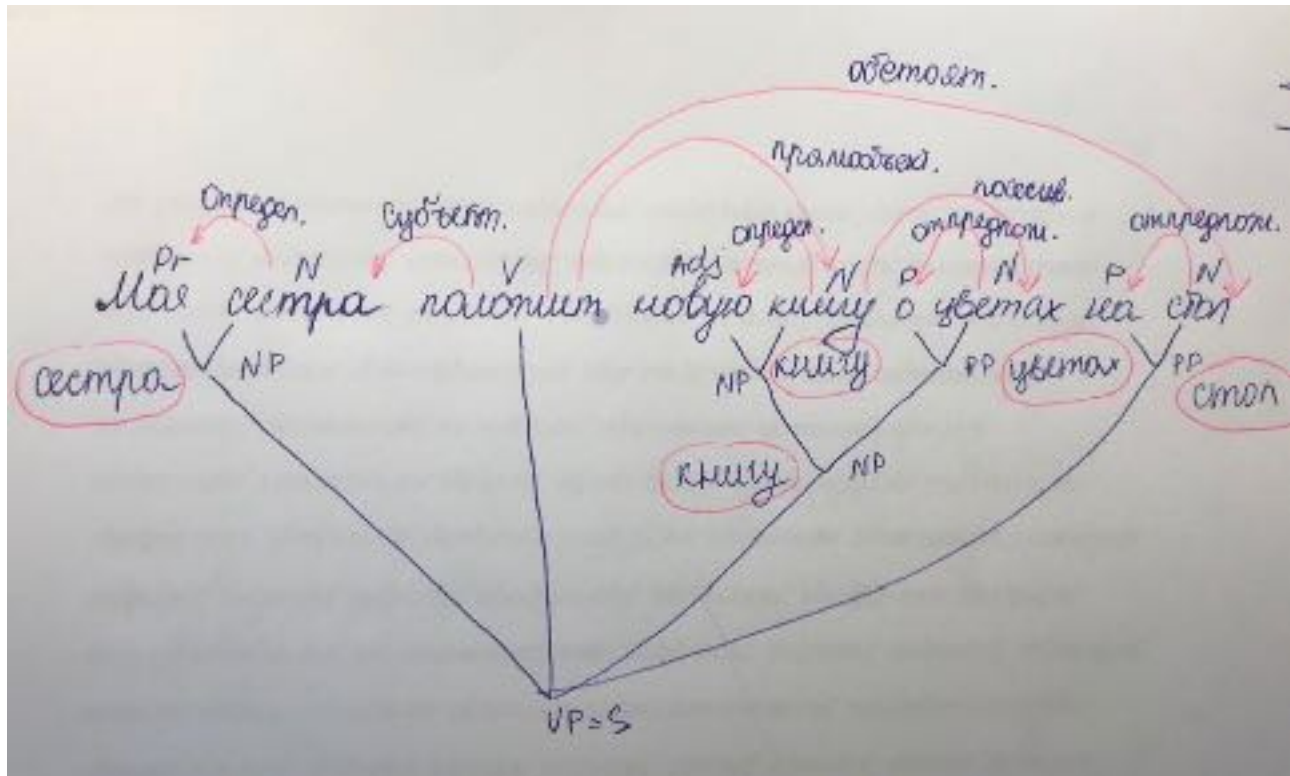 обстоят.
прямообъект.
Опредеп. субъект. опредеп. отпредпож. отпредпож.
Pr N V Adj N P N P N
Моя сестра положит новую книгу о цветах на стол
сестра NP NP книгу PP цветах PP стол
книгу NP
VP=S